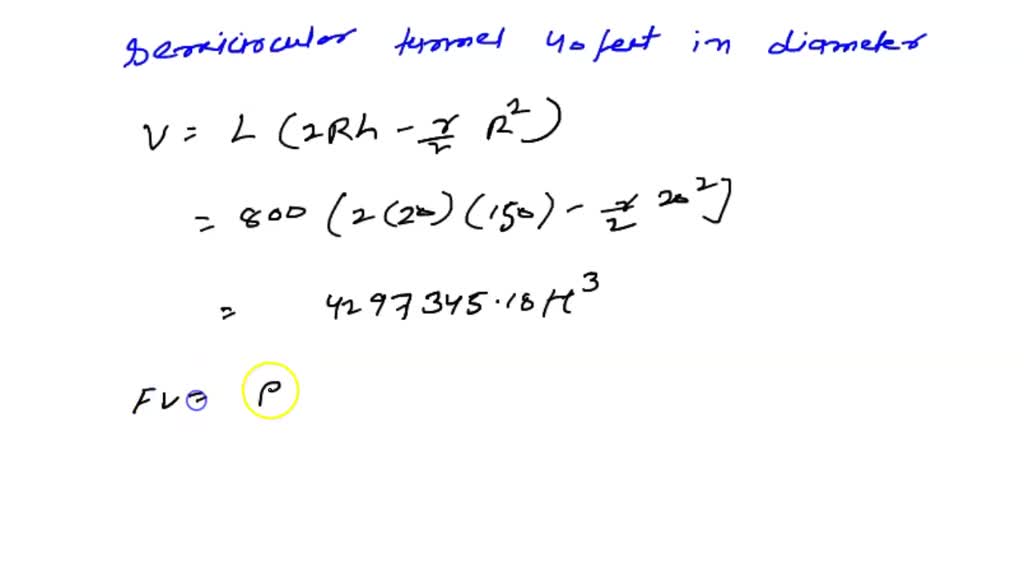 Semicircular tunnel 40 feet in diameter
V = L (2Rh - π/2 R²)
= 800 (2(20)(150) - π/2 20²]
= 4297345.18 ft³
FV = ρ